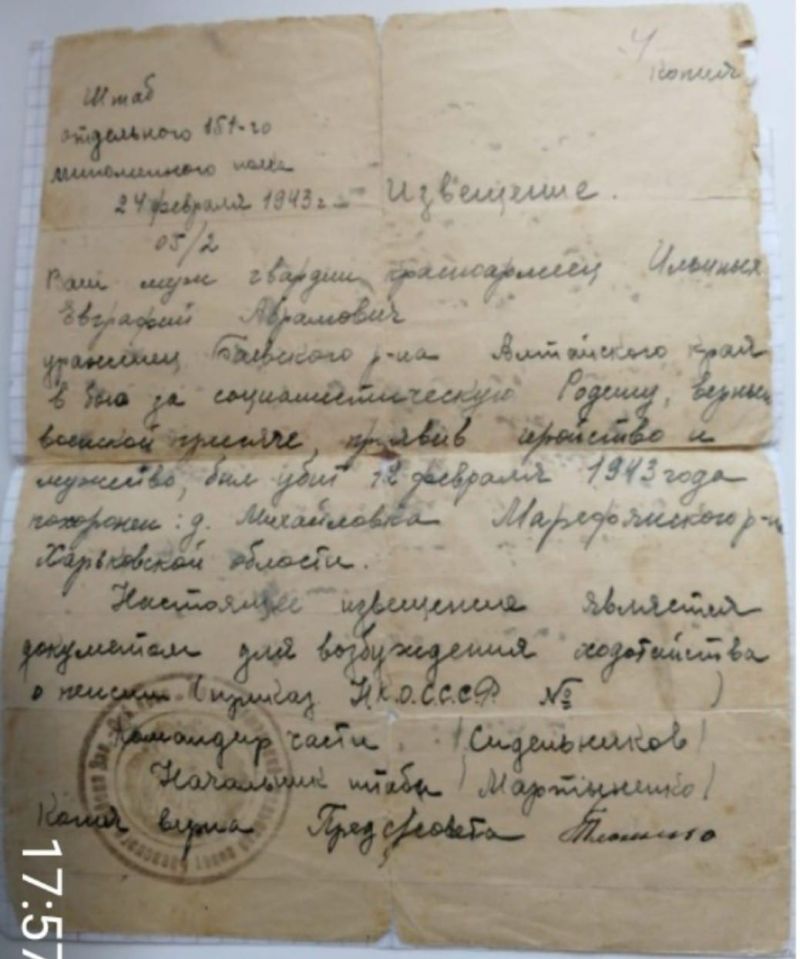 Копия
Штаб
отдельного 151-го
минометного полка
24 февраля 1943 г.
Извещение.
05/2
Ваш муж гвардии красноармеец Ильиных
Евграфий Аврамович
уроженец Баевского р-на Алтайского края
в бою за социалистическую Родину, верный
воинской присяге, проявив геройство и
мужество, был убит 12 февраля 1943 года
похоронен: д. Михайловка Марефянского р-н
Харьковской области.
Настоящее извещение является
документом для возбуждения ходотайства
о пенсии (приказ Н.К.О.С.С.С.Р №      )
Командир части (Сидельников)
Начальник штаба (Мартыненко)
Копия верна Пред с/совета
17:57